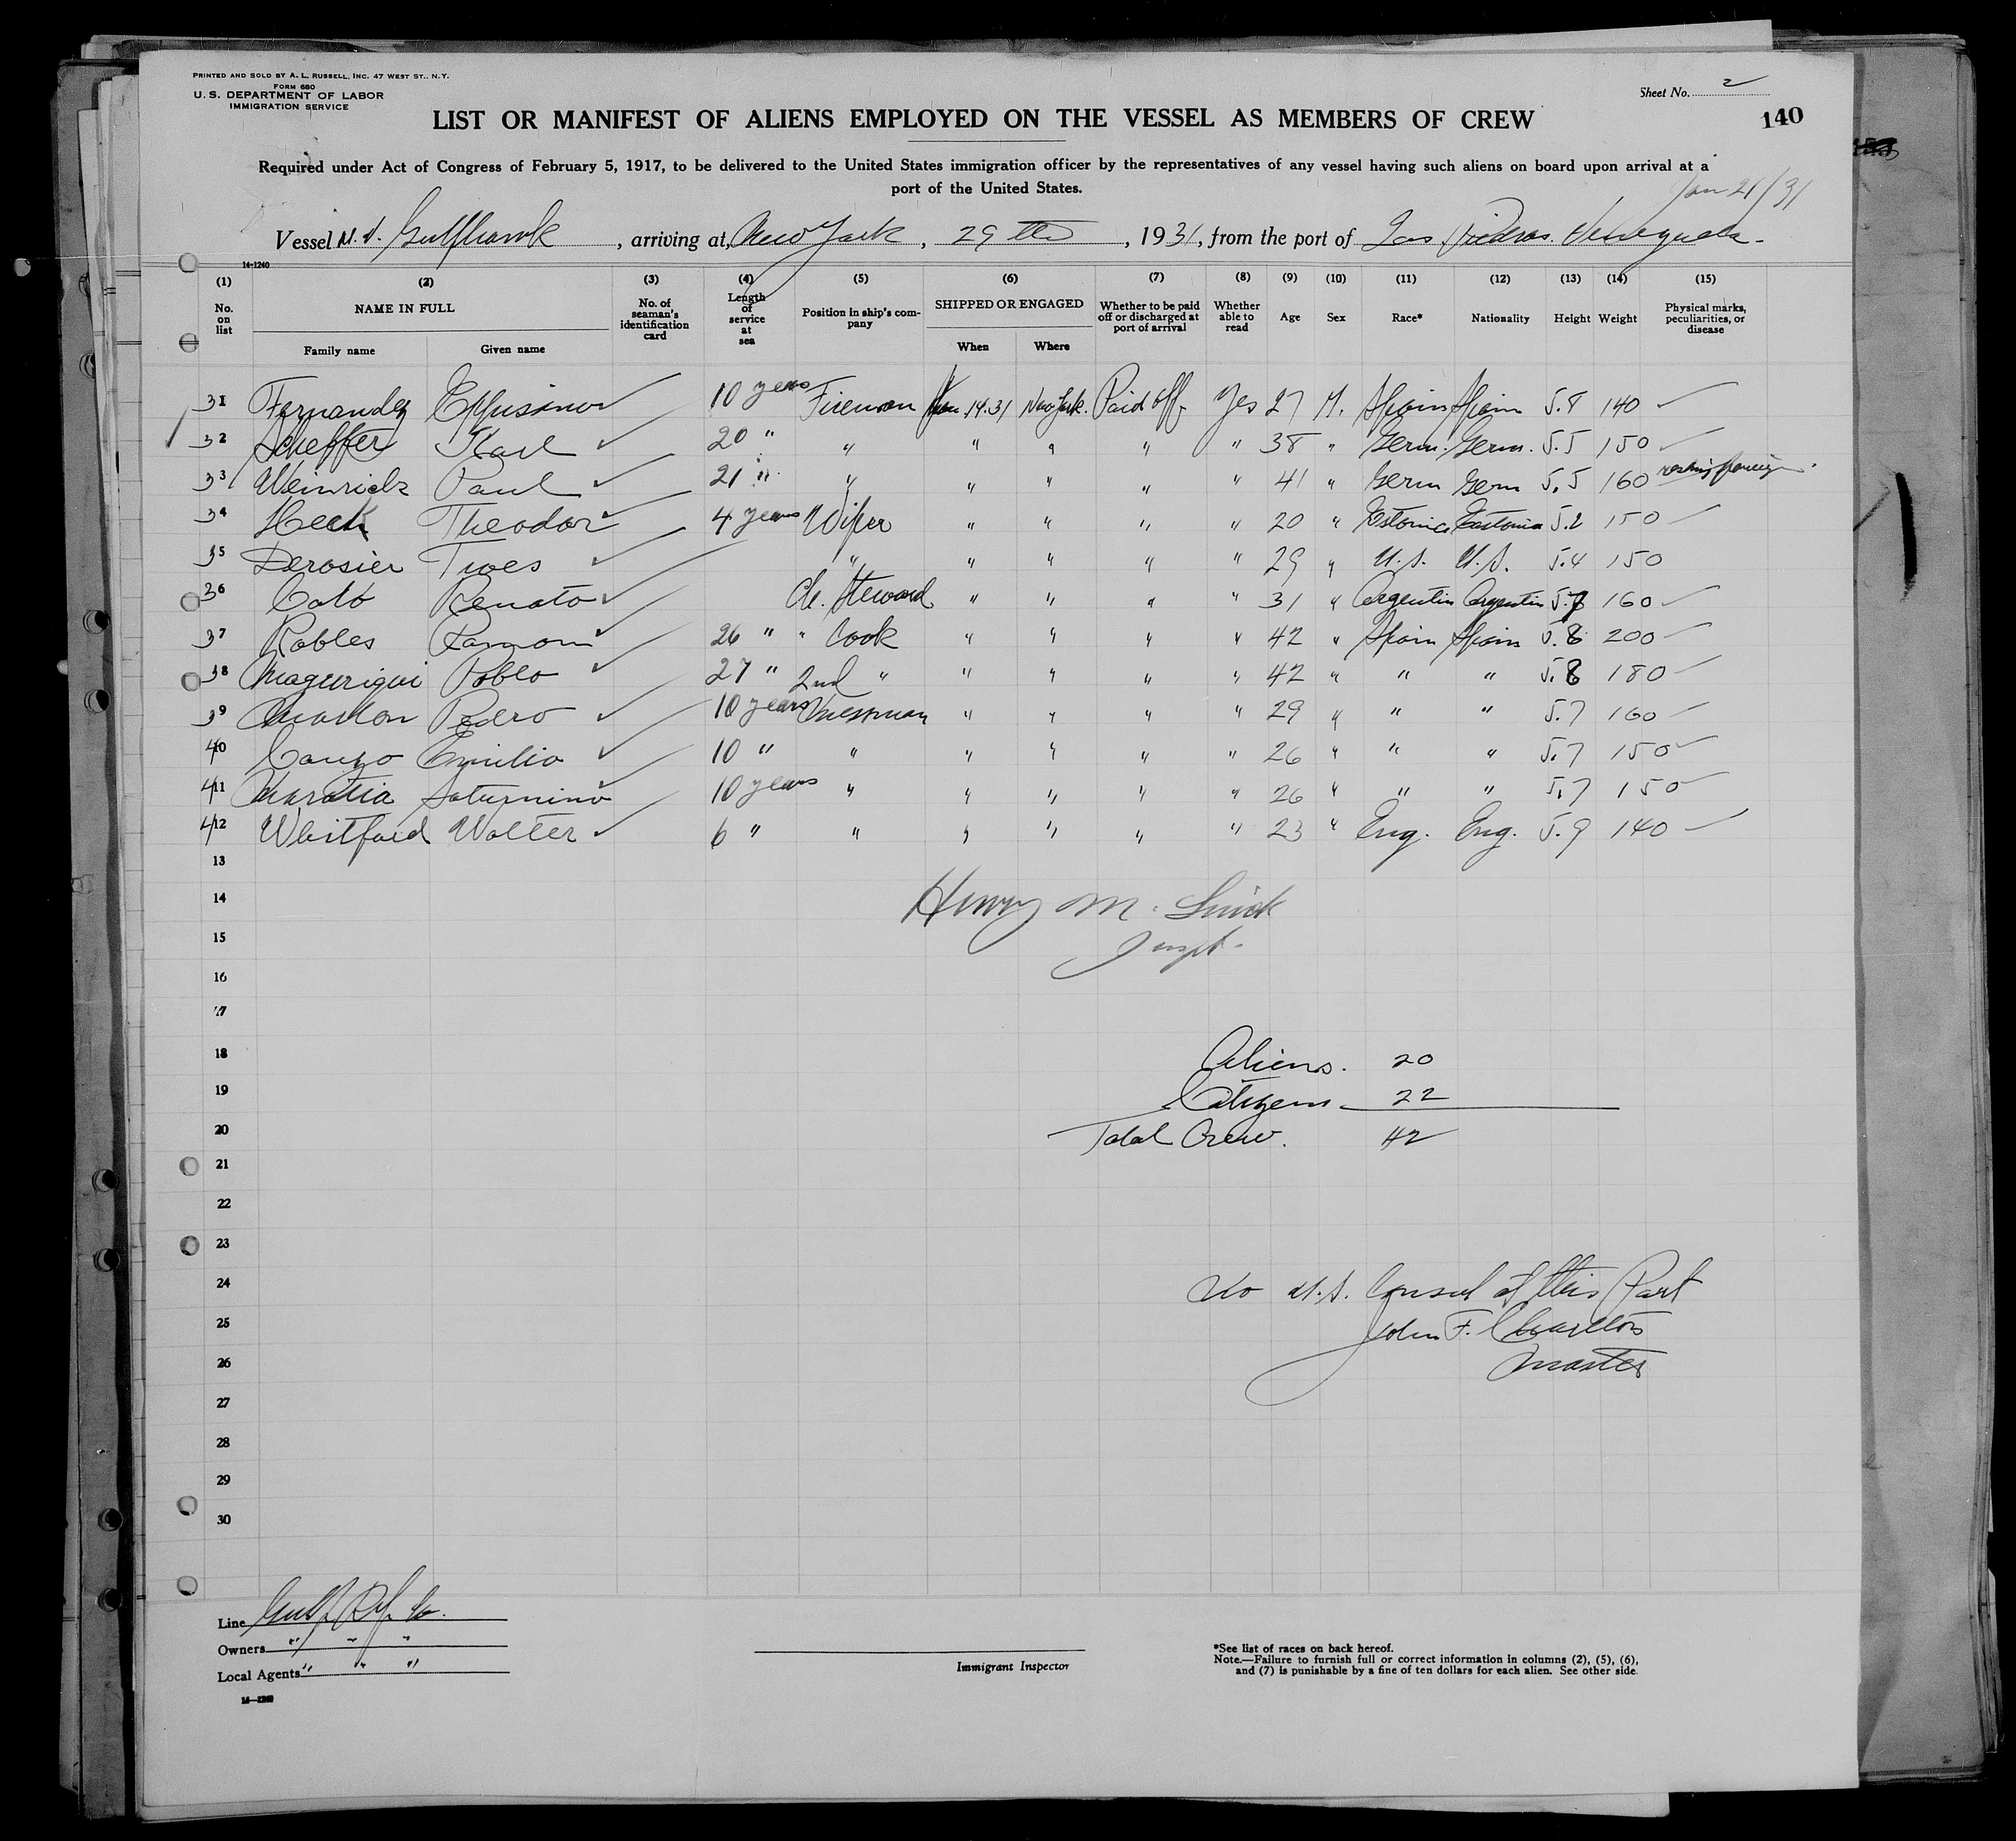 PRINTED AND SOLD BY A. L. RUSSELL, INC. 47 WEST ST., N.Y.
FORM 680
U. S. DEPARTMENT OF LABOR
IMMIGRATION SERVICE
Sheet No. 2
LIST OR MANIFEST OF ALIENS EMPLOYED ON THE VESSEL AS MEMBERS OF CREW
140
Required under Act of Congress of February 5, 1917, to be delivered to the United States immigration officer by the representatives of any vessel having such aliens on board upon arrival at a
port of the United States.
Jan 21/31
Vessel M.V. Gulfhawk, arriving at New York, 29th, 1931, from the port of Las Piedras. Venezuela.
14-1240
(1) (2) (3) (4) (5) (6) (7) (8) (9) (10) (11) (12) (13) (14) (15)
No. on list NAME IN FULL Family name Given name No. of seaman's identification card Length of service at sea Position in ship's company SHIPPED OR ENGAGED When Where Whether to be paid off or discharged at port of arrival Whether able to read Age Sex Race* Nationality Height Weight Physical marks, peculiarities, or disease
31 Fernandez 10 years Fireman Jan. 14.31 New York. Paid off. Yes 27 M. Spain Spain 5.8 140
32 Scheffer Karl 20 " " " " " " 38 " Germ. Germ. 5.5 150
33 Weinrich Paul 21 " " " " " " 41 " Germ Germ 5.5 160
34 Heek Theodor 4 years Wiper " " " " 20 " Estonia Eastonia 5.2 150
35 Derosier " " " " " 29 " U.S. U.S. 5.4 150
36 Calo Renato Ch. Steward " " " " 31 " Argentin Argentin 5.7 160
37 Robles Ramon 26 " " Cook " " " " 42 " Spain Spain 5.8 200
38 Pablo 27 " 2nd " " " " " 42 " " " 5.8 180
39 Pedro 10 years Messman " " " " 29 " " " 5.7 160
40 Emilio 10 " " " " " " 26 " " " 5.7 150
411 Saturnino 10 years " " " " " 26 " " " 5.7 150
412 Whitford Walter 6 " " " " " " 23 " Eng. Eng. 5.9 140
13
14 Henry M.
15 Inspt.
16
17
18 Aliens. 20
19 Citizens 22
20 Total Crew. 42
21
22
23
24 No U.S. Consul at this Port
25 John F. Charlton
26 Master
27
28
29
30
Line Gulf Ref. Co.
Owners " " "
Local Agents " " "
Immigrant Inspector
*See list of races on back hereof.
Note.—Failure to furnish full or correct information in columns (2), (5), (6),
and (7) is punishable by a fine of ten dollars for each alien. See other side.
14—1240